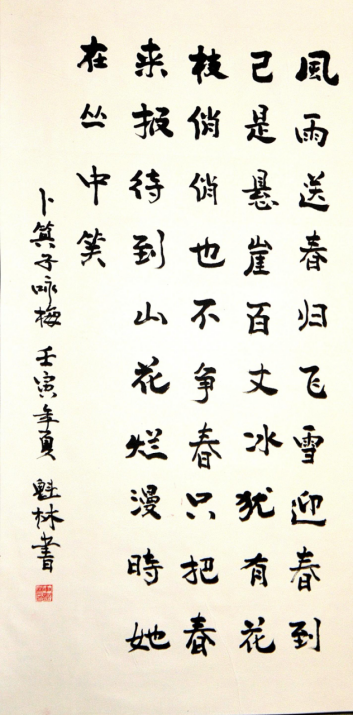 風雨送春归飞雪迎春到
已是悬崖百丈冰犹有花
枝俏俏也不争春只把春
来报待到山花烂漫時她
在丛中笑
卜算子咏梅 壬寅年夏 魁林書